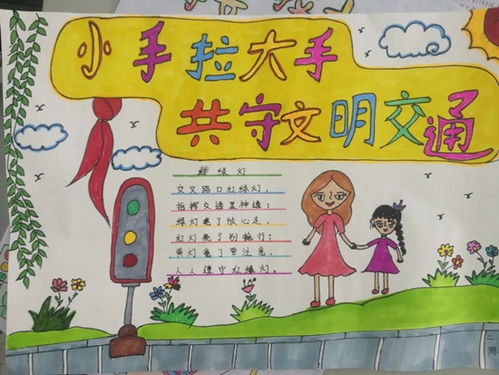 小手拉大手
共守文明交通
红绿灯
交叉路口红绿灯，
指挥交通显神通；
绿灯亮了放心走，
红灯亮了别抢行；
黄灯亮了要注意，
人人遵守红绿灯。